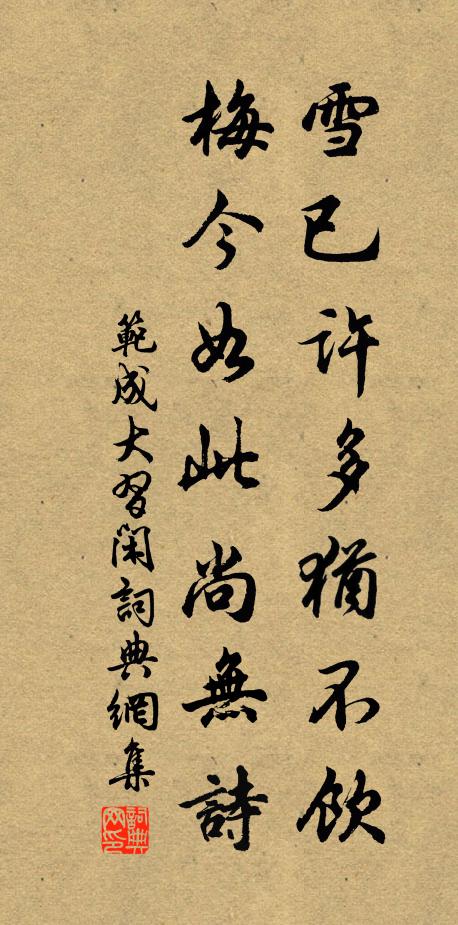 雪已許多猶不飲
梅今如此尚無詩
範成大習閑詞典網集
詞典网印